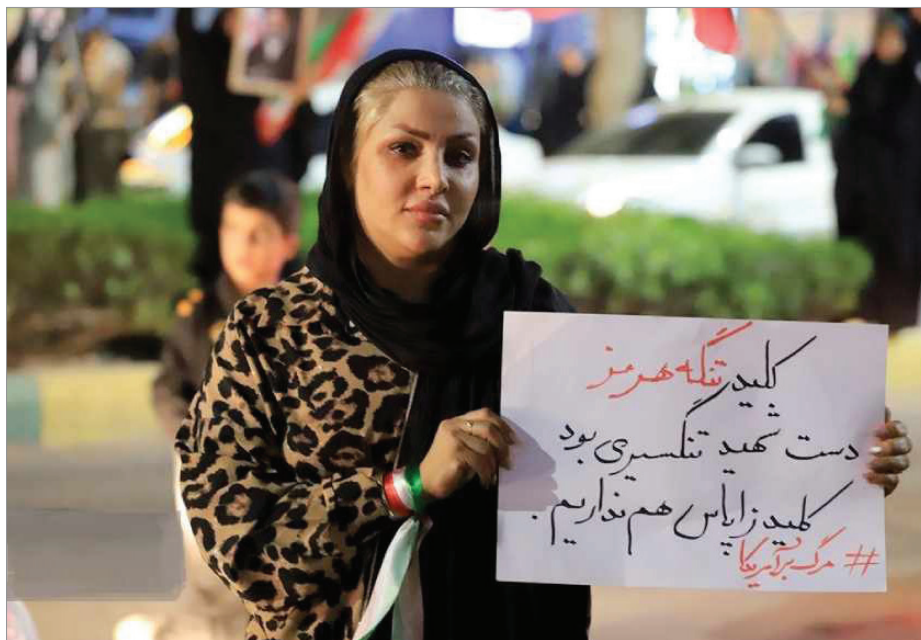 کلید تنگه هرمز
دست شهید تنگسیری بود
کلید زاپاس هم نداریم.
# مرگ بر آمریکا